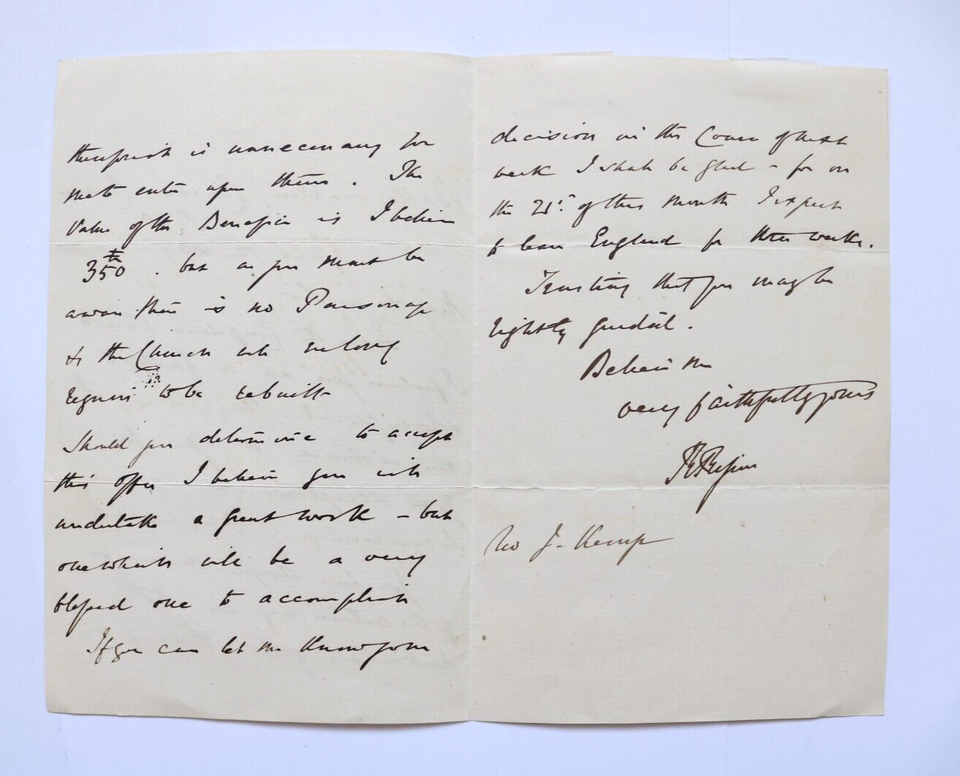 therefore it is unnecessary for
me to enter upon them. The
Value of the Benefice is I believe
350£. but as you must be
aware there is no Parsonage
& the Church will ere long
require to be rebuilt
Should you determine to accept
this offer I believe you will
undertake a great work - but
one which will be a very
blessed one to accomplish
If you can let me know your
decision in the Course of next
week I shall be glad - for on
the 21st. of this Month I expect
to leave England for three weeks.
Trusting that you may be
rightly guided.
Believe me
very faithfully yours
J. Kemp